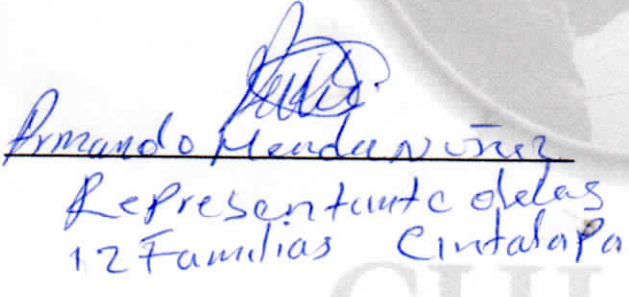 Armando Mendez Nuñez
Representante de las
12 Familias Cintalapa
CHI